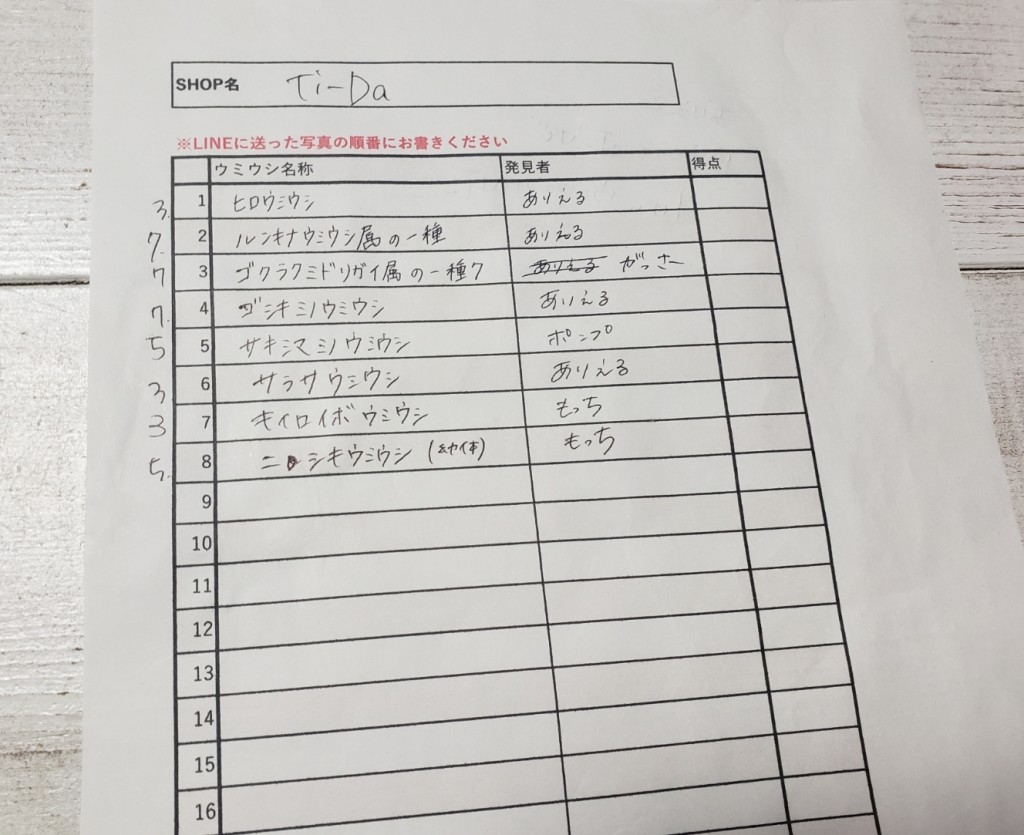 SHOP名 Ti-Da
※LINEに送った写真の順番にお書きください
ウミウシ名称 発見者 得点
3. 1 ヒロウミウシ ありえる
7. 2 ルンキナウミウシ属の一種 ありえる
7 3 ゴクラクミドリガイ属の一種7 ありえる がっさー
7. 4 ゴシキミノウミウシ ありえる
5 5 サキシマミノウミウシ ポンプ
3 6 サラサウミウシ ありえる
3 7 キイロイボウミウシ もっち
5. 8 ニシキウミウシ (幼体) もっち
9
10
11
12
13
14
15
16